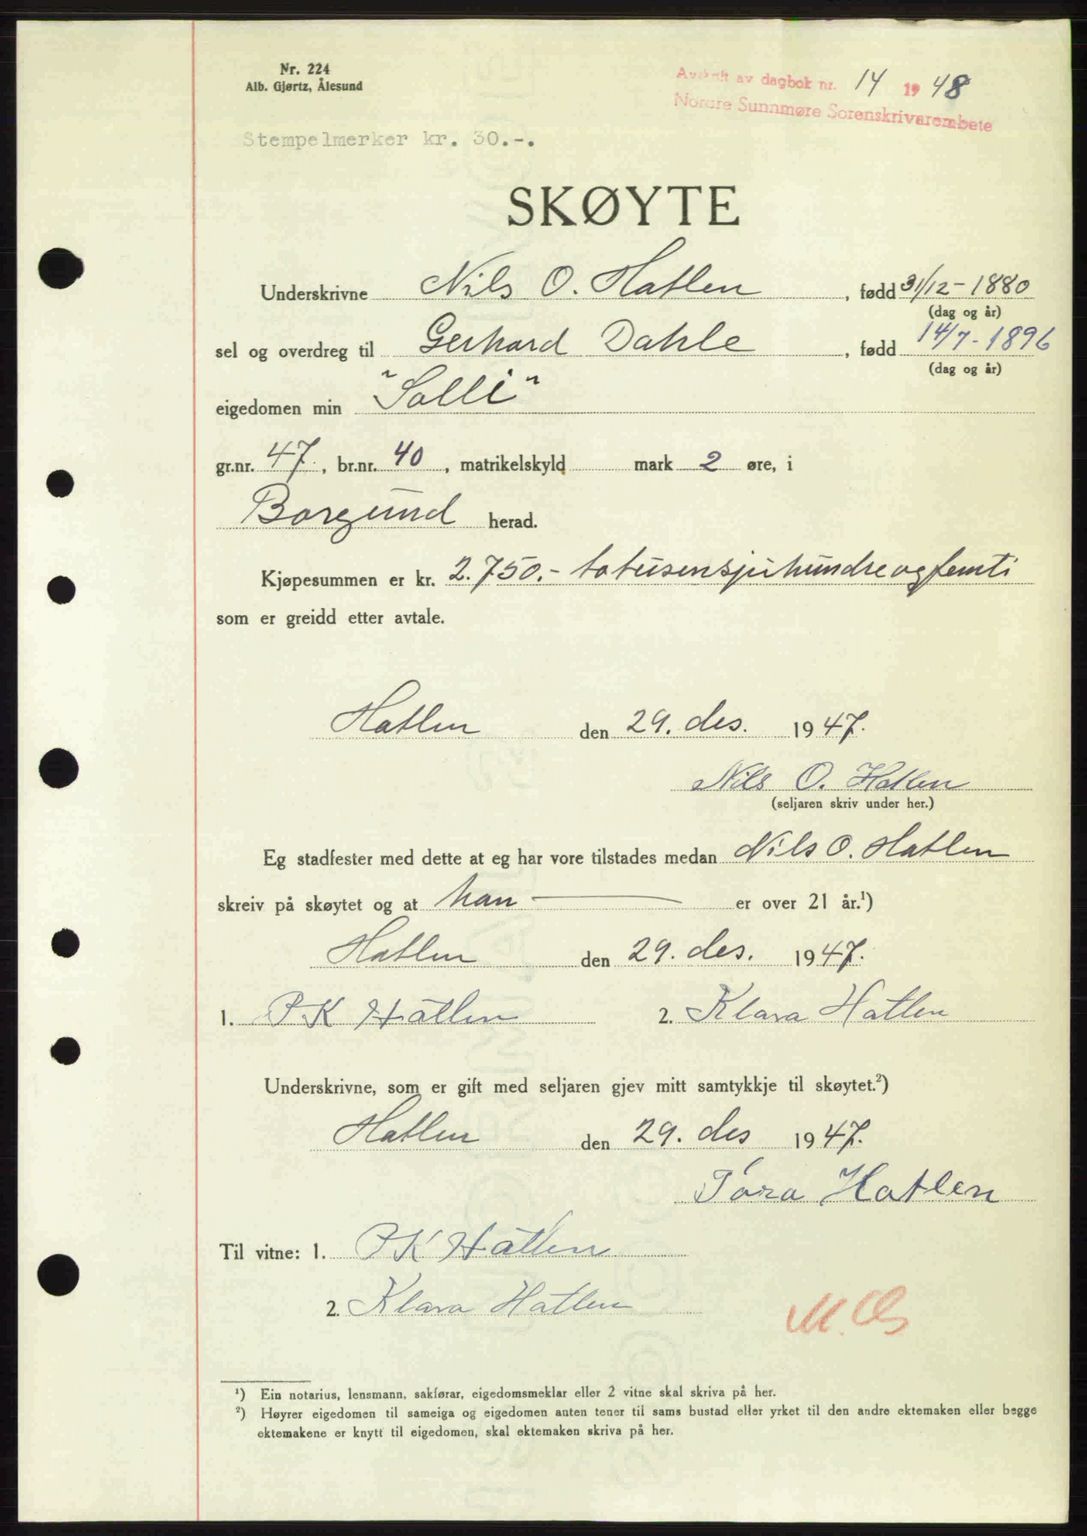 Nr. 224
Alb. Gjørtz, Ålesund
Avskrift av dagbok nr. 14 1948
Nordre Sunnmøre Sorenskrivarembete
Stempelmerker kr. 30.-.
SKØYTE
Underskrivne Nils O. Hatlen, fødd 31/12-1880
(dag og år)
sel og overdreg til Gerhard Dahle, fødd 14/7-1896
(dag og år)
eigedomen min "Solli"
gr.nr. 47, br.nr. 40, matrikelskyld mark 2 øre, i
Borgund herad.
Kjøpesummen er kr. 2.750.- totusensjuhundreogfemti
som er greidd etter avtale.
Hatlen den 29. des. 1947.
Nils O. Hatlen
(seljaren skriv under her.)
Eg stadfester med dette at eg har vore tilstades medan Nils O. Hatlen
skreiv på skøytet og at han er over 21 år.¹)
Hatlen den 29. des. 1947.
1. P K Hatlen 2. Klara Hatlen
Underskrivne, som er gift med seljaren gjev mitt samtykkje til skøytet.²)
Hatlen den 29. des 1947.
Tora Hatlen
Til vitne: 1. P K Hatlen
2. Klara Hatlen
¹) Ein notarius, lensmann, sakførar, eigedomsmeklar eller 2 vitne skal skriva på her.
²) Høyrer eigedomen til sameiga og eigedomen anten tener til sams bustad eller yrket til den andre ektemaken eller begge
ektemakene er knytt til eigedomen, skal ektemaken skriva på her.